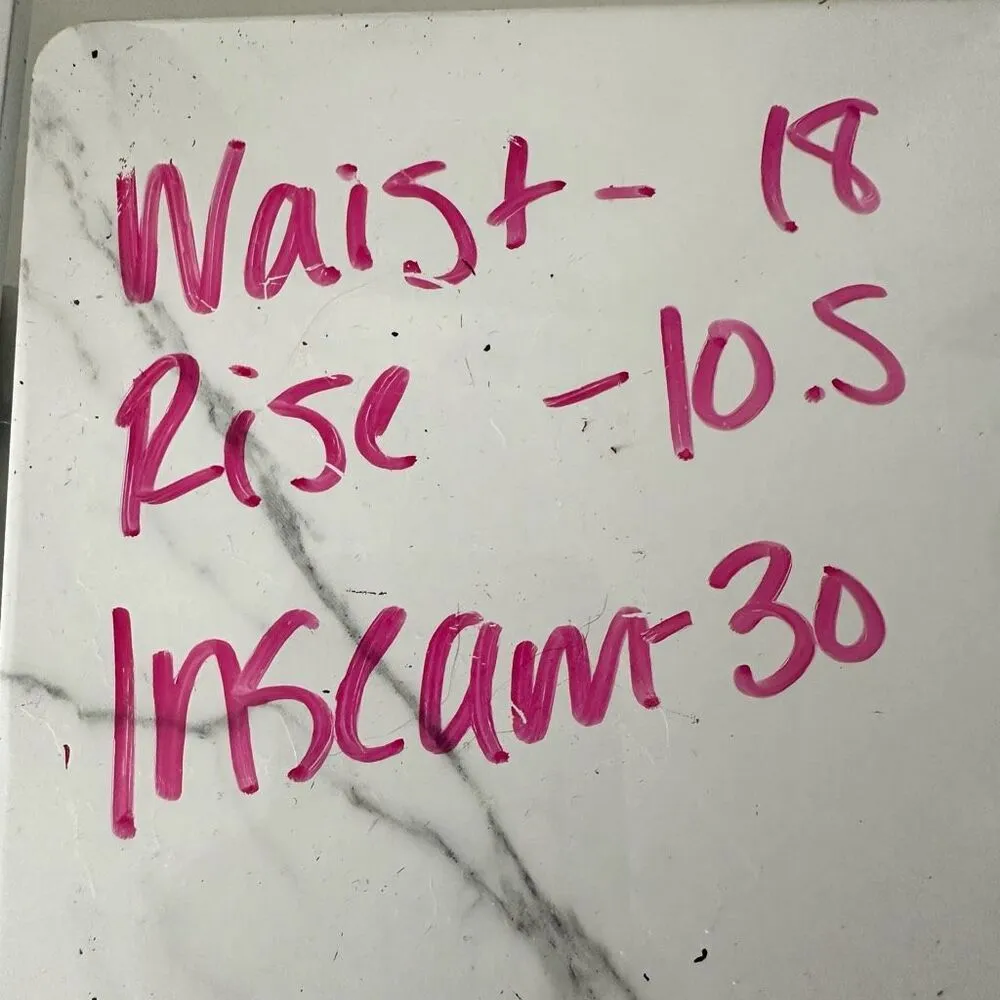 Waist - 18
Rise - 10.5
Inseam - 30